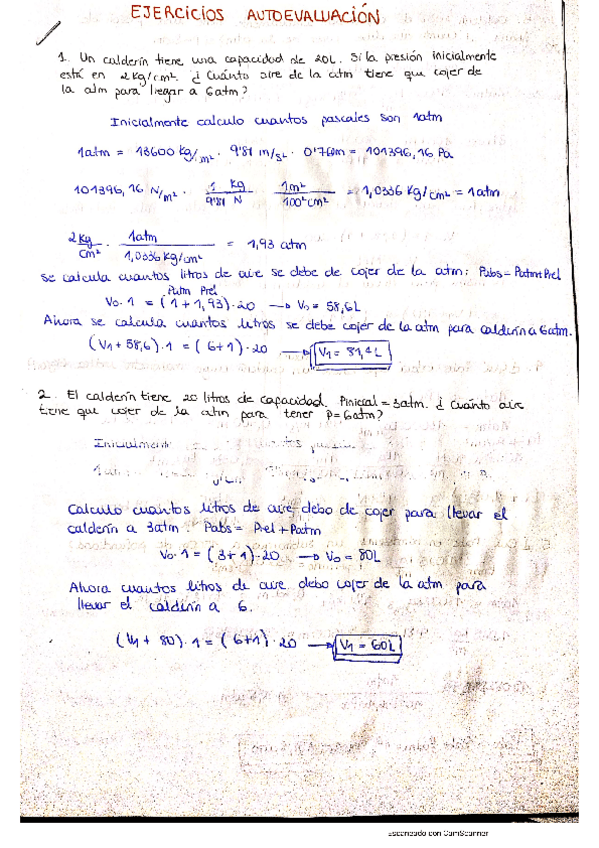 EJERCICIOS AUTOEVALUACIÓN
1. Un calderín tiene una capacidad de 20L. Si la presión inicialmente
está en 2kg/cm². ¿Cuánto aire de la atm tiene que cojer de
la atm para llegar a 6atm?
Inicialmente calculo cuantos pascales son 1atm
1atm = 13600 kg/m² · 9'81 m/s² · 0'760m = 101396,16 Pa
101396,16 N/m² · 1 kg / 9'81 N · 1m² / 100² cm² = 1,0336 kg/cm² = 1atm
2kg/cm² · 1atm / 1,0336kg/cm² = 1,93 atm
se calcula cuantos litros de aire se debe de cojer de la atm: Pabs = Patm+Prel
Patm Prel
V₀·1 = (1+1,93)·20 → V₀ = 58,6L
Ahora se calcula cuantos litros se debe cojer de la atm para calderín a 6atm.
(V₁+58,6)·1 = (6+1)·20 → V₁ = 81,4L
2. El calderín tiene 20 litros de capacidad. Pinicial = 3atm. ¿Cuánto aire
tiene que cojer de la atm para tener p=6atm?
Inicialmente
Calculo cuantos litros de aire debo de cojer para llevar el
calderín a 3atm: Pabs = Prel + Patm
V₀·1 = (3+1)·20 → V₀ = 80L
Ahora cuantos litros de aire debo cojer de la atm para
llevar el calderín a 6.
(V₁ + 80)·1 = (6+1)·20 → V₁ = 60L
Escaneado con CamScanner